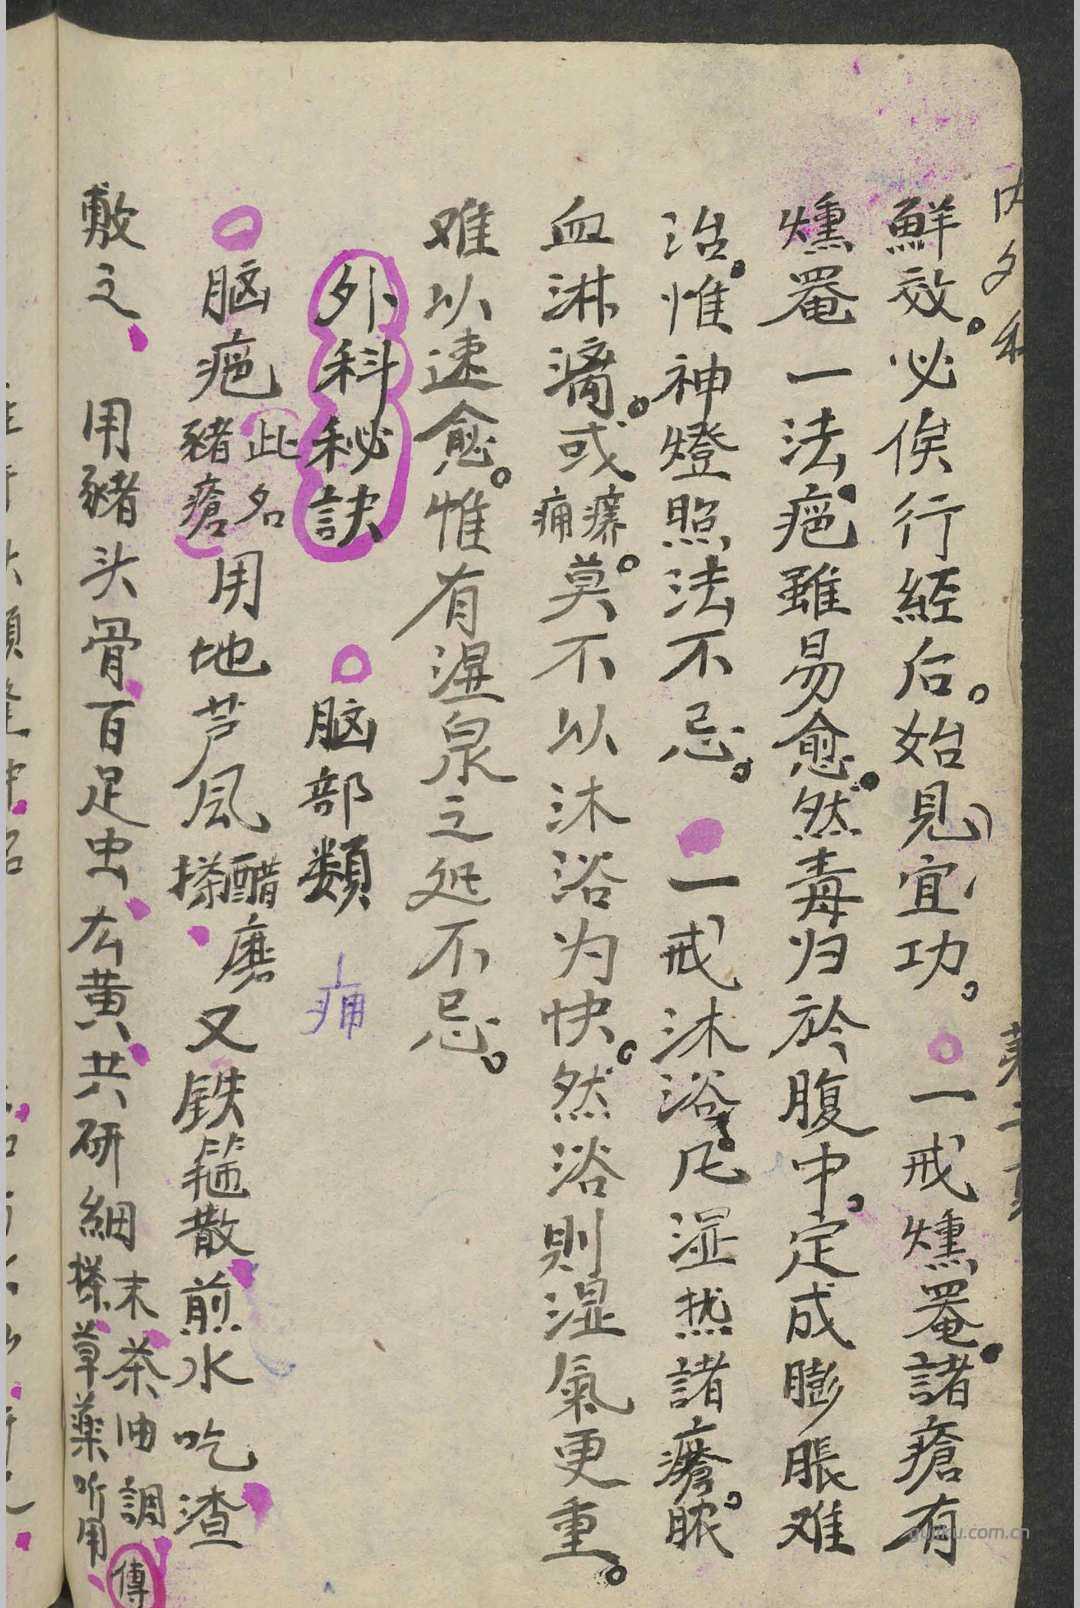 鮮效。必俟行經后。始見宜功。一戒燻罨。諸瘡有
燻罨一法。疤雖易愈。然毒归於腹中。定成膨脹难
治。惟神燈照法不忌。一戒沐浴。凡湿热諸瘡。脓
血淋漓。或痛痒。莫不以沐浴为快。然浴則湿氣更重。
难以速愈。惟有溫泉之処不忌。
外科秘訣 脑部類 痛
脑疤此名豬瘡用地芦风醋搽磨又鉄箍散煎水吃渣
敷之 用豬头骨百足虫公黄共研細末茶油調搽草薬听用 傳
内外科
gujiku.com.cn